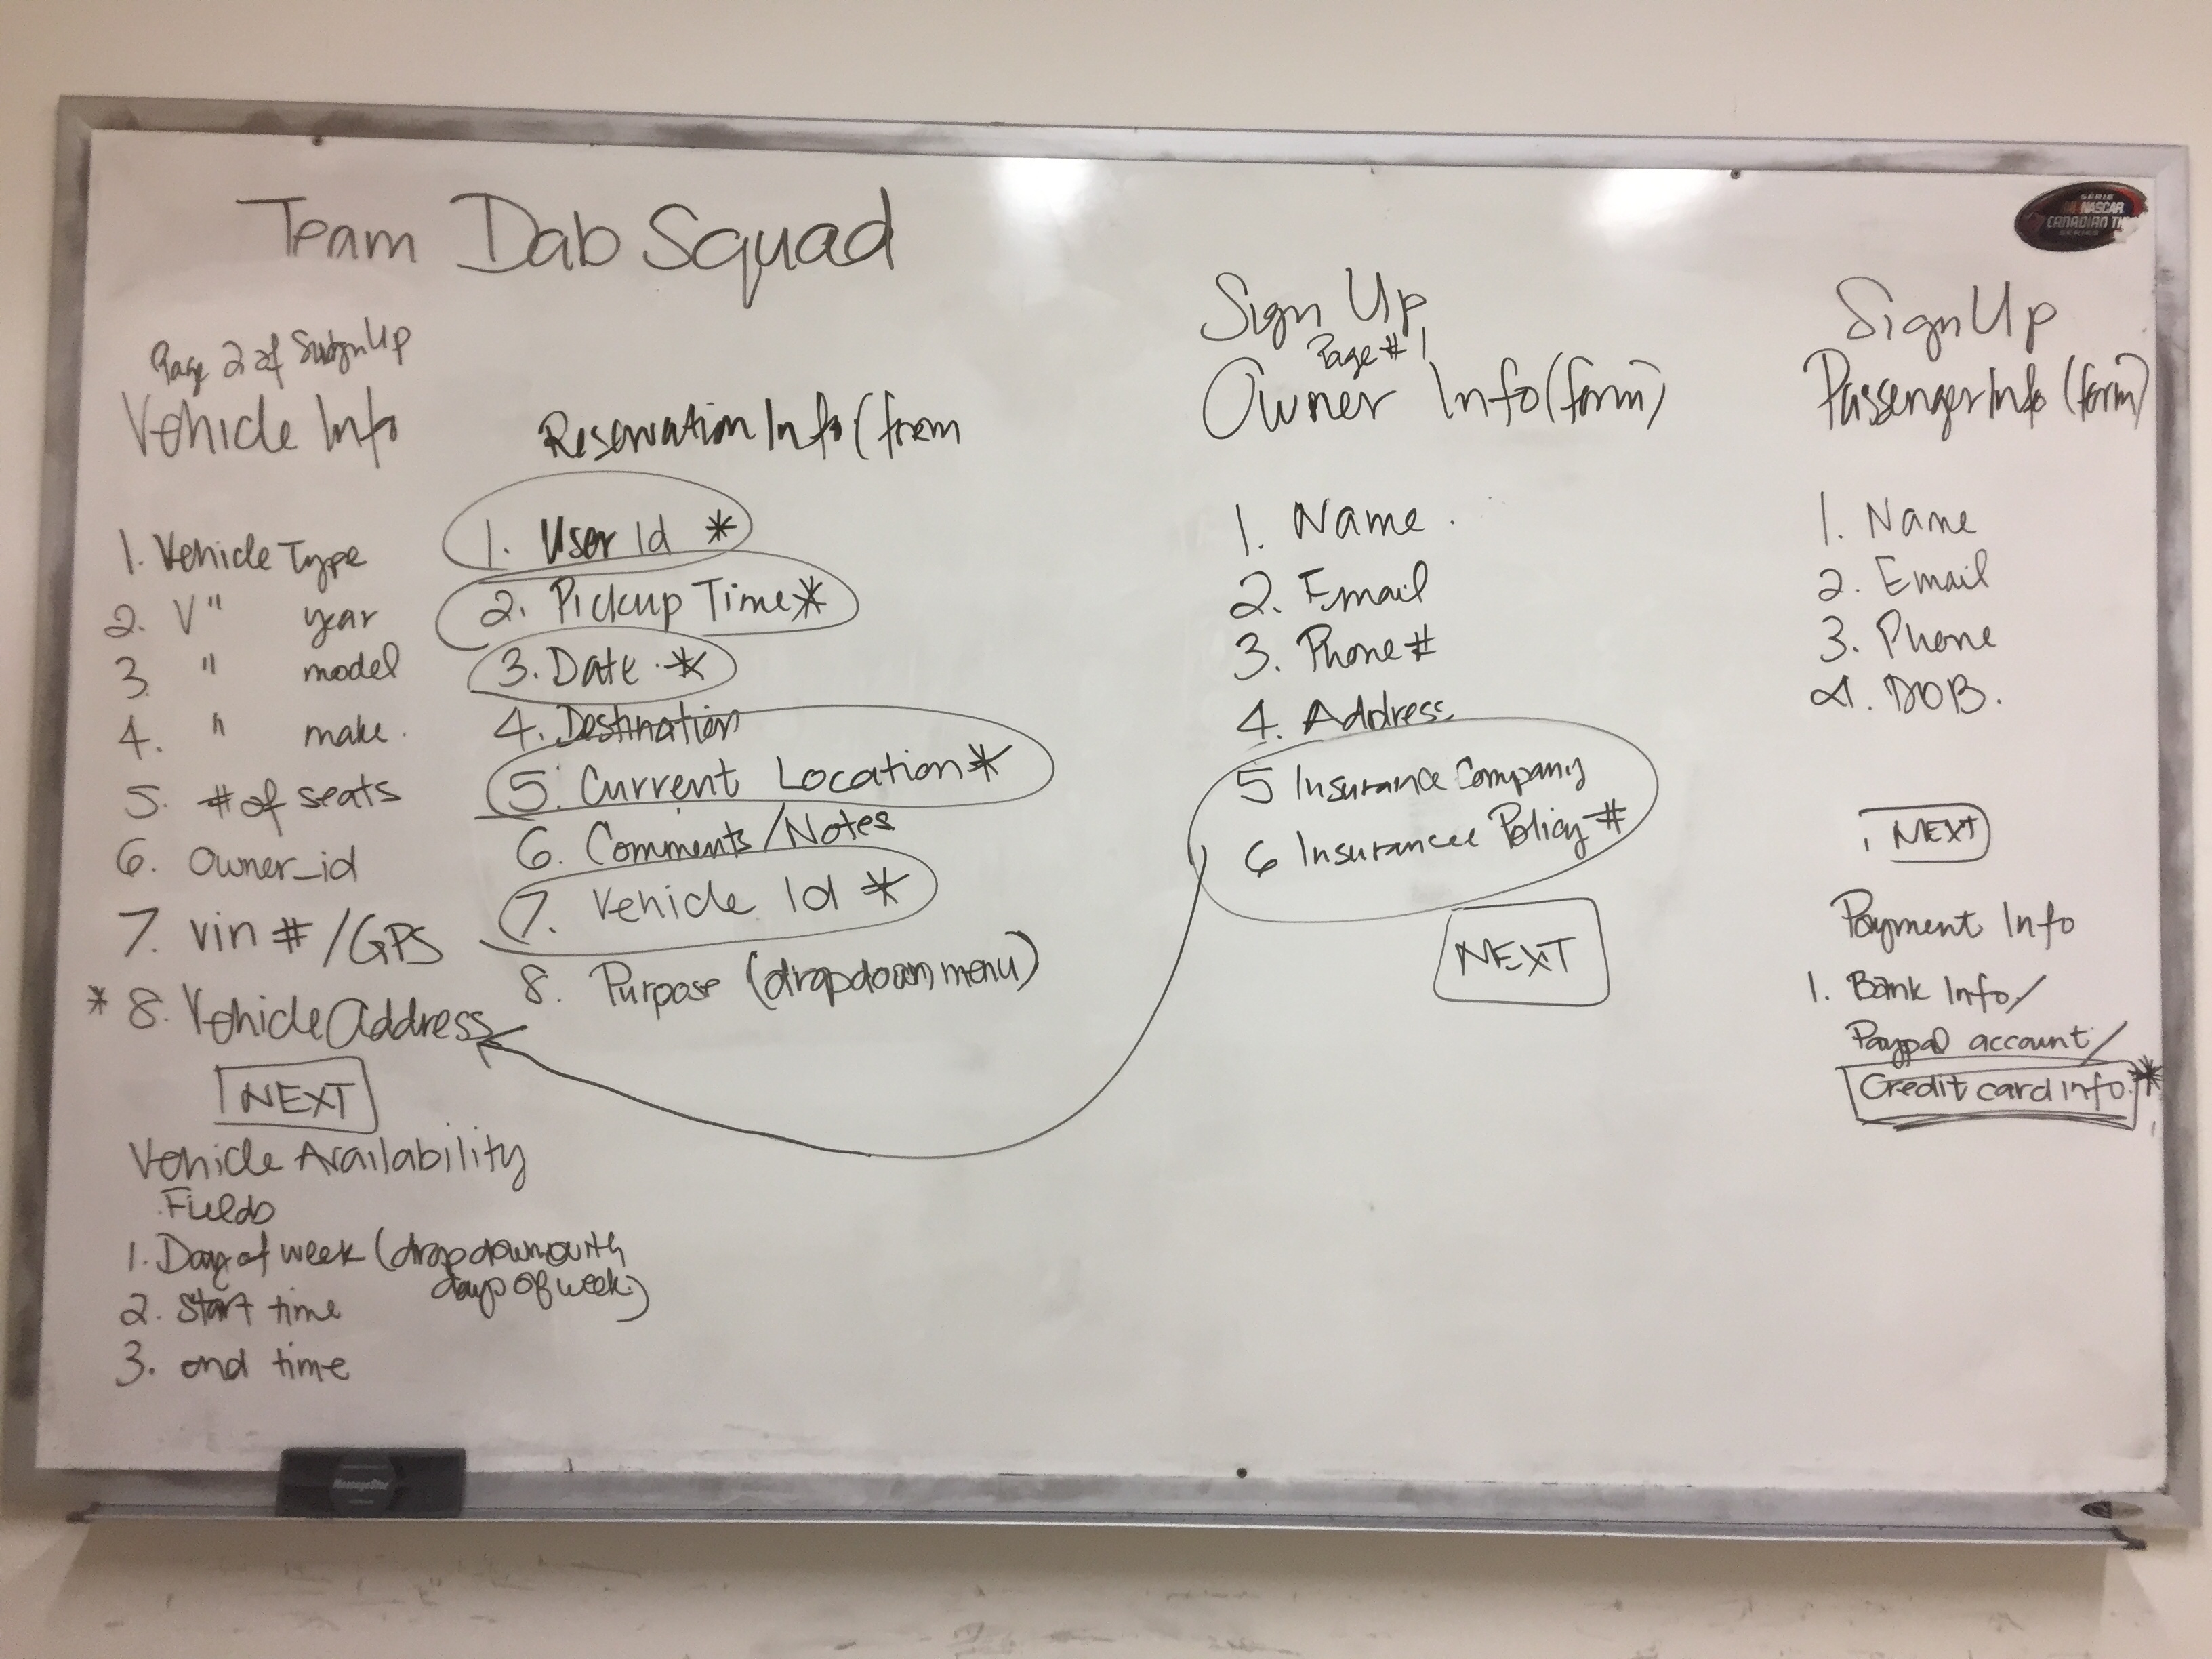 Team Dab Squad
SERIE
NASCAR
CANADIAN TI
SERIES
Page 2 of SignUp
Vehicle Info
1. Vehicle Type
2. V " year
3. " model
4. " make.
5. # of seats
6. Owner_id
7. vin # /GPS
* 8. Vehicle Address
NEXT
Vehicle Availability
Fields
1. Day of week (dropdown with
days of week)
2. Start time
3. end time
Reservation Info (from
1. User Id *
2. Pickup Time *
3. Date *
4. Destination
5. Current Location *
6. Comments/Notes
7. Vehicle Id *
8. Purpose (dropdown menu)
Sign Up
Page # 1
Owner Info (form)
1. Name
2. Email
3. Phone #
4. Address
5 Insurance Company
6 Insurance Policy #
NEXT
Sign Up
Passenger Info (form)
1. Name
2. Email
3. Phone
4. DOB.
NEXT
Payment Info
1. Bank Info/
Paypal account/
Credit card info. *